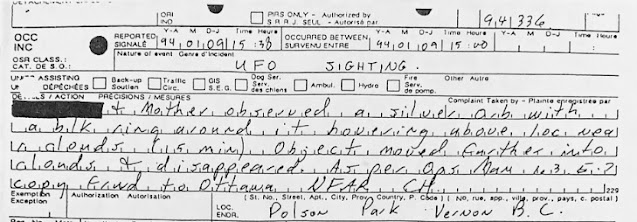 ORI
INO
PIRS ONLY - Authorized by
S.R.R.J. SEUL - Autorisé par
94 1336
OCC
INC
REPORTED
SIGNALÉ
Y-A M D-J Time Heure
94 01 09 15:30
OCCURRED BETWEEN
SURVENU ENTRE
Y-A M D-J Time Heure
94 01 09 15:00
Y-A M D-J Time Heure
OSR CLASS.:
CAT. DE S.O.:
Nature of event Genre d'incident
UFO SIGHTING.
ASSISTING
DÉPÊCHÉES
Back-up
Soutien
Traffic
Circ.
GIS
S.E.G.
Dog Serv.
Serv. des chiens
Ambul.
Hydro
Fire Serv.
Serv. de pomp.
Other Autre
DETAILS / ACTION PRÉCISIONS / MESURES
Complaint Taken by - Plainte enregistrée par
& Mother observed a silver orb with
a blk ring around it hovering above loc near
clouds (5 min) Object moved further into
clouds & disappeared. As per Ops Man
copy frwd to Ottawa
229
Exemption
Exception
Authorization Autorisation
(St. No., Street, Apt., City, Prov., Country, P. Code) (NO, rue, app., ville, prov., pays, c. postal)
LOC.
ENDR.
Polson Park Vernon B.C.